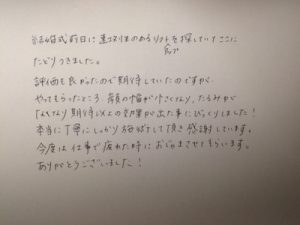 結婚式前日に即効性のあるリフトを探していてここに
アップ
たどりつきました。
評価も良かったので期待していたのですが、
やってもらったところ、顔の幅が小さくなり、たるみが
なくなり期待以上の効果が出た事にびっくりしました!
本当に丁寧にしっかり施術して頂き感謝しています。
今度は仕事で疲れた時におじゃまさせてもらいます。
ありがとうございました!